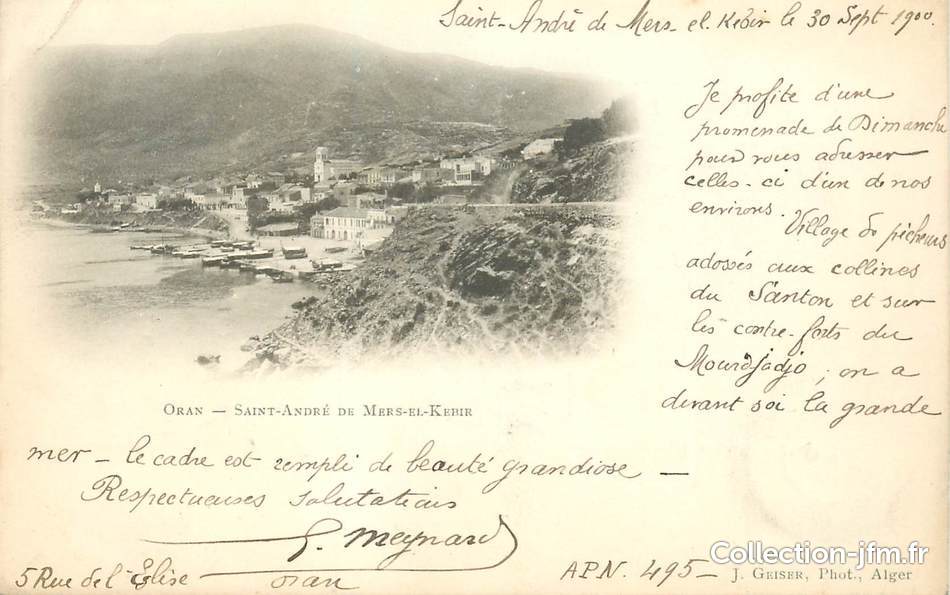 Saint-André de Mers-el-Kébir le 30 Sept 1900
Je profite d'une
promenade de Dimanche
pour vous adresser
celles-ci d'un de nos
environs.
Village de pêcheurs
adossés aux collines
du Santon et sur
les contre-forts du
Mourdjadjo ; on a
devant soi la grande
ORAN — SAINT-ANDRÉ DE MERS-EL-KEBIR
mer — le cadre est rempli de beauté grandiose —
Respectueuses salutations
G. Meynard
5 Rue de l'Eglise
Oran
A.P.N. 495 —
Collection-jfm.fr
J. GEISER, Phot., Alger